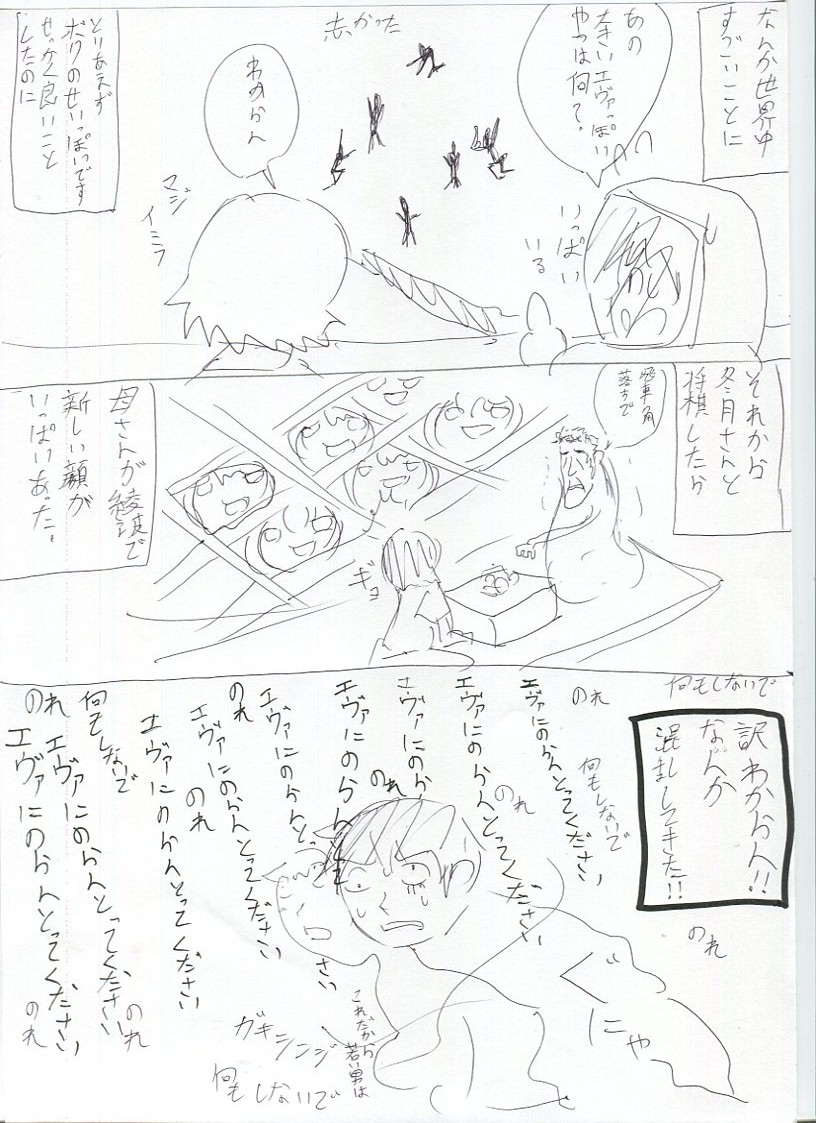 なんか世界中
すごいことに
あの
大きいエヴァっぽい
やつは何て.
赤かった
わからん
とりあえず
ボクのせいっぽいです
せっかく良いこと
したのに
いっぱい
いる
マジ
イミフ
それから
冬月さんと
将棋したら
飛車角
落ちで
ギョ
母さんが綾波で
新しい顔が
いっぱいあった。
何もしないで
訳わからん!!
なんか
混乱してきた!!
のれ
のれ
何もしないで
エヴァにのらんとってください
のれ
エヴァにのらんとってください
エヴァにのらんと
のれ
エヴァにのらんとって
さい
エヴァにのらんとってください
のれ
エヴァにのらんとってください
のれ
エヴァにのらんとってください
何もしないで
エヴァにのらんとってください
のれ
のれ
エヴァにのらんとってください
のれ
ぐ
にゃ
これだから
若い男は
ガキシンジ
何もしないで